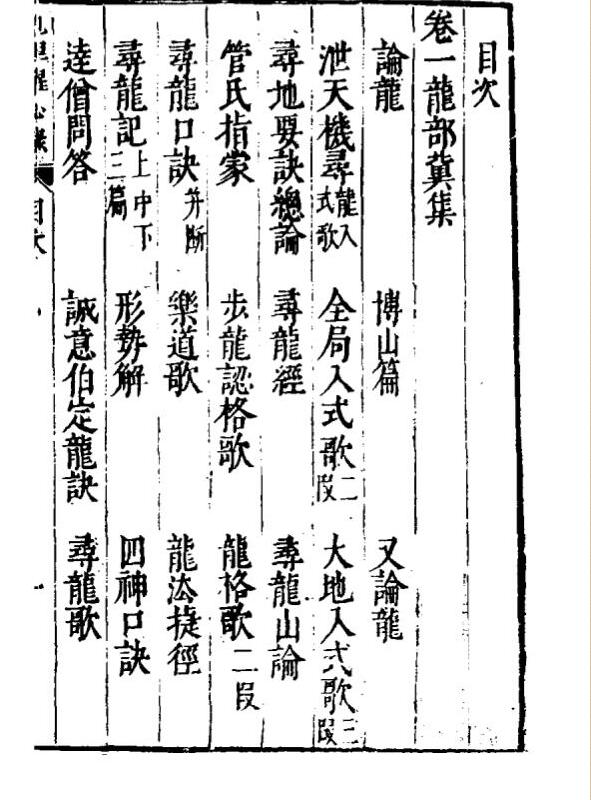 目次
卷一龍部冀集
論龍 博山篇 又論龍
泄天機尋龍入式歌 全局入式歌二段 大地入式歌三段
尋地要訣總論 尋龍經 尋龍山論
管氏指蒙 步龍認格歌 龍格歌二段
尋龍口訣并斷 樂道歌 龍法捷徑
尋龍記上中下三篇 形勢解 四神口訣
達僧問答 誠意伯定龍訣 尋龍歌
目次 一